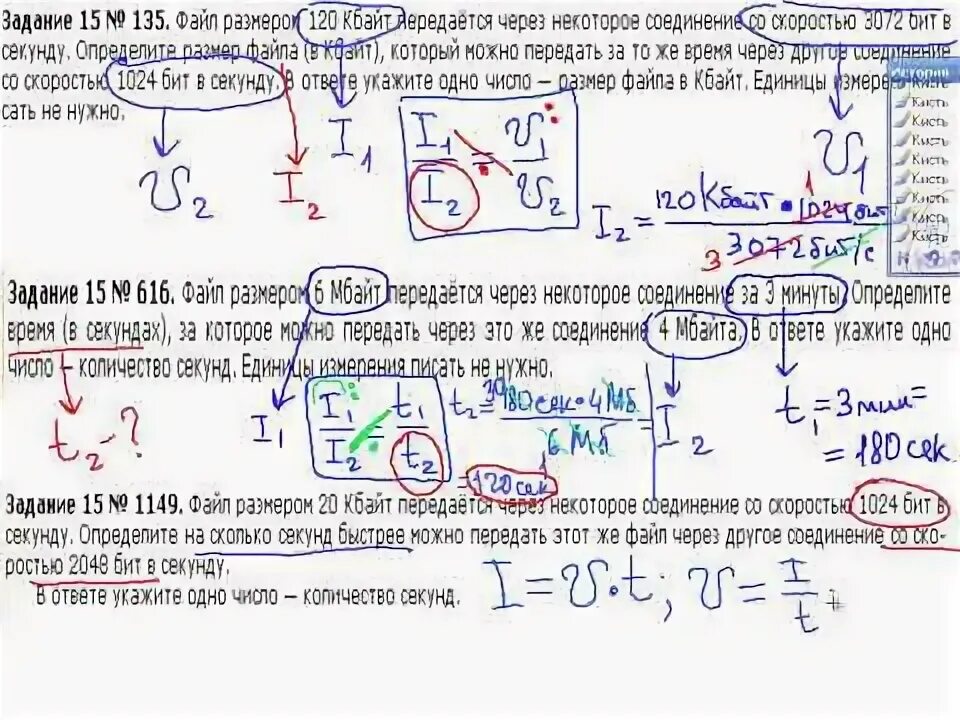 Задание 15 № 135. Файл размером 120 Кбайт передаётся через некоторое соединение со скоростью 3072 бит в
секунду. Определите размер файла (в Кбайт), который можно передать за то же время через другое соединение
со скоростью 1024 бит в секунду. В ответе укажите одно число — размер файла в Кбайт. Единицы измере
сать не нужно.
Кисть
Кисть
Кисть
Кисть
Кисть
Кисть
Кисть
υ2
I2
I1
I1/I2 = υ1/υ2
υ1
I2 = 120 Кбайт • 1024 бит / 3072 бит/с
1
3
Задание 15 № 616. Файл размером 6 Мбайт передаётся через некоторое соединение за 3 минуты. Определите
время (в секундах), за которое можно передать через это же соединение 4 Мбайта. В ответе укажите одно
число — количество секунд. Единицы измерения писать не нужно.
t2 - ?
I1
I1/I2 = t1/t2
t2 = 180 сек • 4 Мб / 6 Мб =
30
= 120 сек
I2
t1 = 3 мин =
= 180 сек
Задание 15 № 1149. Файл размером 20 Кбайт передаётся через некоторое соединение со скоростью 1024 бит в
секунду. Определите на сколько секунд быстрее можно передать этот же файл через другое соединение со ско-
ростью 2048 бит в секунду.
В ответе укажите одно число — количество секунд.
I = υ • t ; υ = I/t